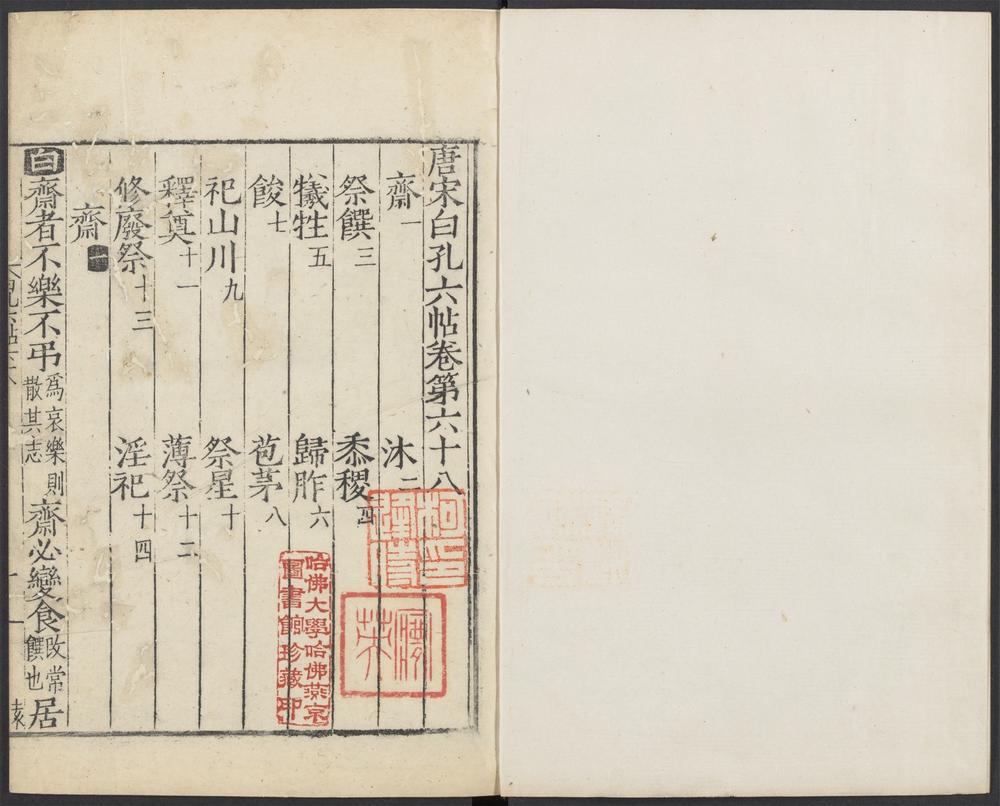 唐宋白孔六帖卷第六十八
齋一 沐二
祭饌三 黍稷四
犧牲五 歸胙六
餕七 苞茅八
祀山川九 祭星十
釋奠十一 薄祭十二
修廢祭十三 淫祀十四
齋一
白齋者不樂不弔爲哀樂則散其志齋必變食改常饌也居
哈佛大學哈佛燕京
圖書館珍藏印